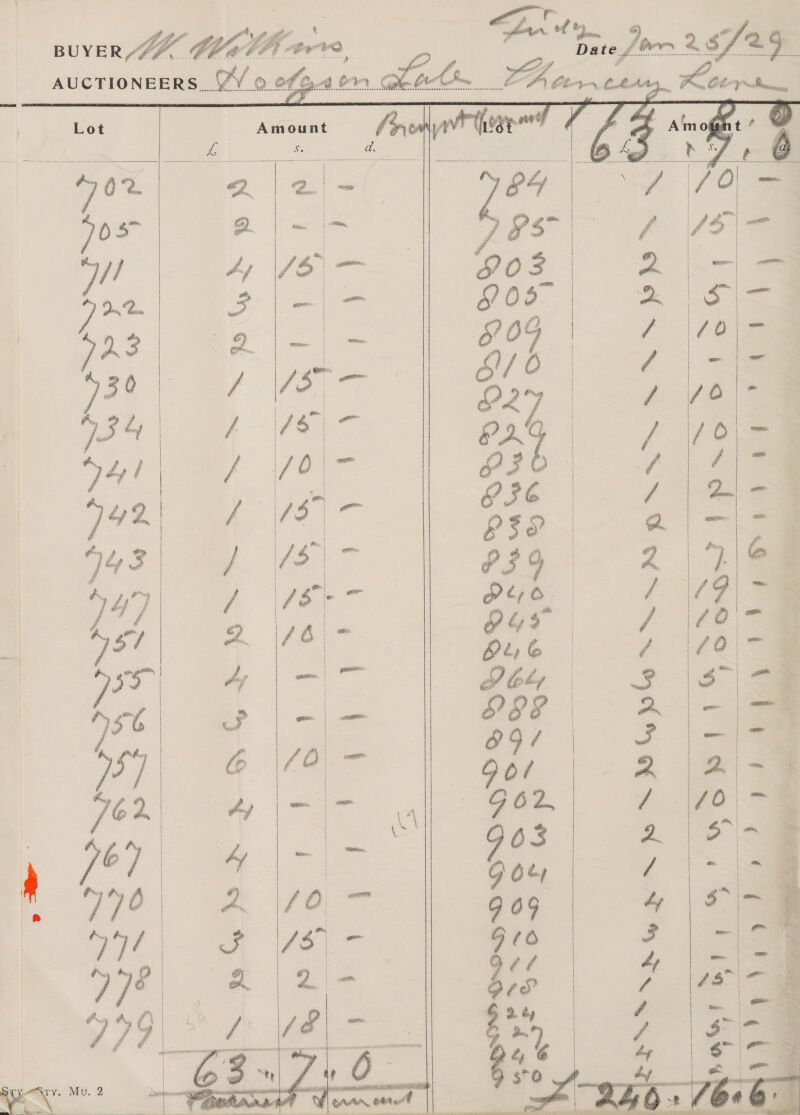 Friday
BUYER W. Wilkins Date Jan 25/29
AUCTIONEERS Hodgson Sale Chancery Lane
Lot Amount Lot Amount
£ s. d. £ s. d.
Brought Forward 63 . 7 . 0
702 2 2 –
705 2 – –
711 4 15 –
722 3 – –
723 2 – –
730 1 15 –
734 1 15 –
741 1 10 –
742 1 15 –
743 1 15 –
747 1 15 –
751 2 10 –
755 4 – –
756 3 – –
757 6 10 –
762 4 – –
767 4 – –
770 2 10 –
771 3 15 –
778 2 2 –
779 1 18 –
63 " 7 " 0
784 1 10 –
785 1 15 –
803 2 – –
805 2 5 –
809 1 10 –
810 1 – –
827 1 10 –
829 1 10 –
830 1 1 –
836 1 2 –
838 2 – –
839 2 7 6
840 1 19 –
845 1 10 –
846 1 10 –
864 3 5 –
888 2 – –
891 3 – –
901 2 2 –
902 1 10 –
903 2 5 –
904 1 – –
909 4 5 –
910 3 – –
911 4 – –
918 1 15 –
924 1 – –
927 1 5 –
946 4 5 –
950 4 – –
£ 240 : 16 . 6
Sty Srv. Mu. 2